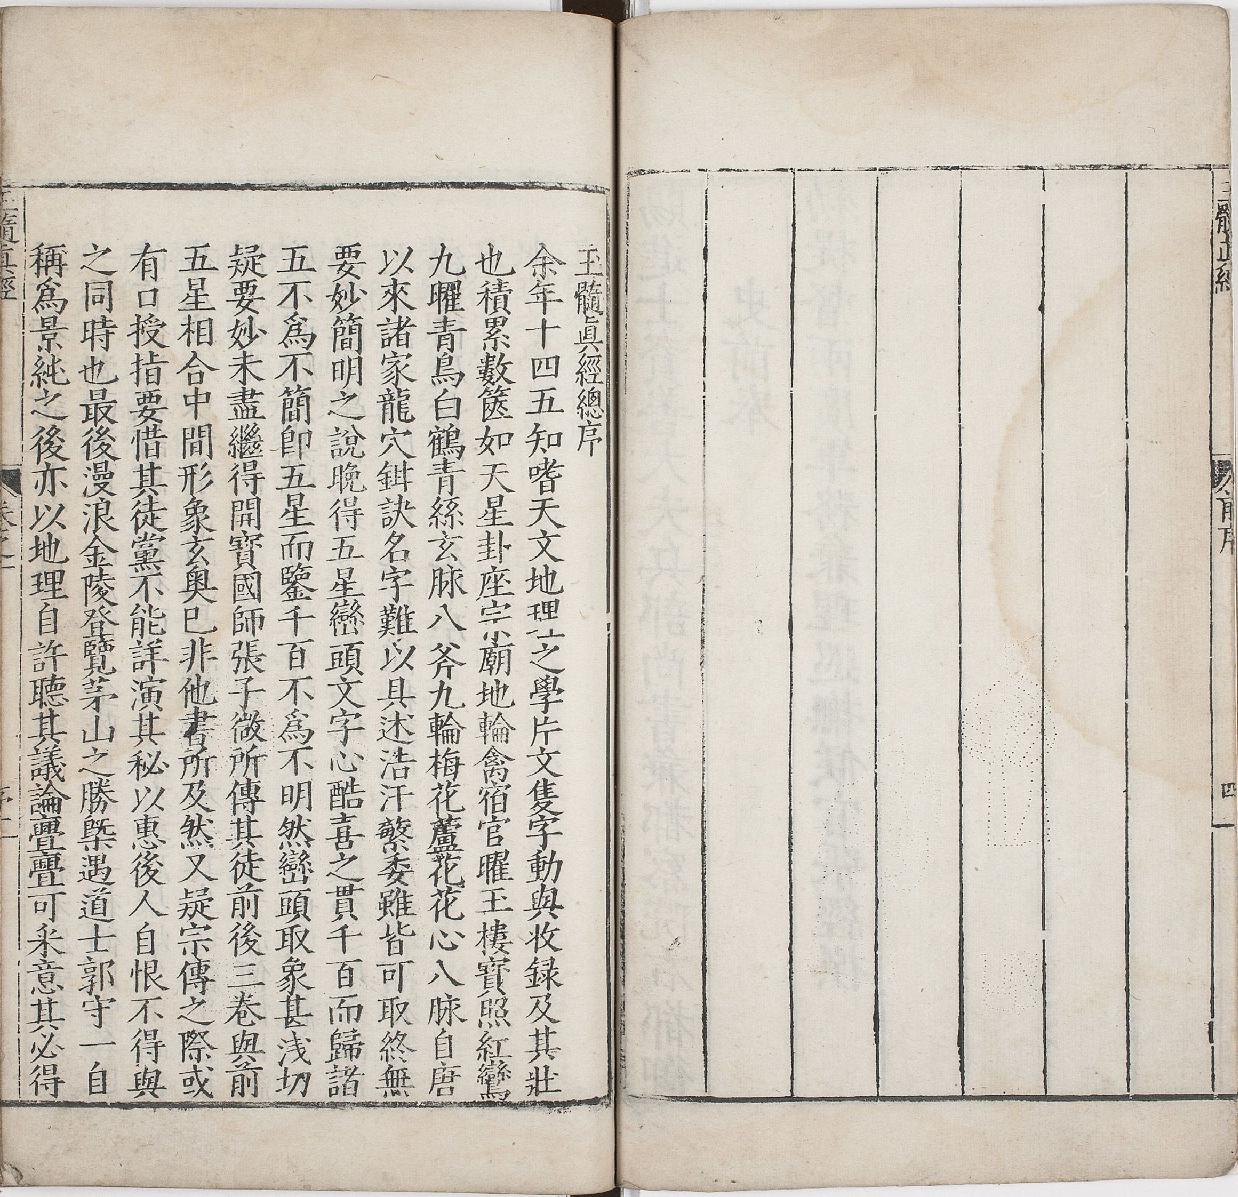 玉髓眞經
前序
四
玉髓眞經總序
余年十四五知嗜天文地理之學片文隻字動與收録及其壯
也積累數篋如天星卦座宗廟地輪禽宿官曜玉樓寶照紅鸞
九曜青烏白鶴青絲玄脉八斧九輪梅花蘆花花心八脉自唐
以來諸家龍穴鉗訣名字難以具述浩汗繁委雖皆可取終無
要妙簡明之說晚得五星巒頭文字心酷喜之貫千百而歸諸
五不爲不簡卽五星而鑒千百不爲不明然巒頭取象甚浅切
疑要妙未盡繼得開寶國師張子微所傳其徒前後三卷與前
五星相合中間形象玄奥已非他書所及然又疑宗傳之際或
有口授指要惜其徒黨不能詳演其秘以惠後人自恨不得與
之同時也最後漫浪金陵登覽茅山之勝槩遇道士郭守一自
稱爲景純之後亦以地理自許聽其議論亹亹可采意其必得
玉髓眞經
卷之一
序一